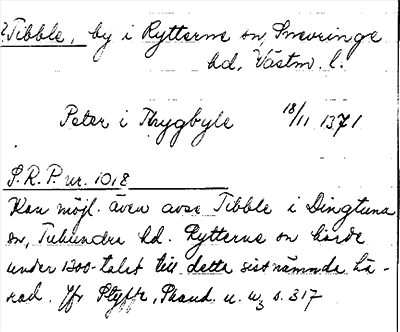 ?Tibble, by i Rytterne sn, Snevringe
hd, Västm. l.
Peter i Thygbyle 18/11 1371
S.R.P. nr. 1018
Kan möjl. även avse Tibble i Dingtuna
sn, Tuhundra hd. Rytterne sn hörde
under 1300-talet till detta sistnämnda hä-
rad. Jfr Styffe, Skand. u. u3 s. 317